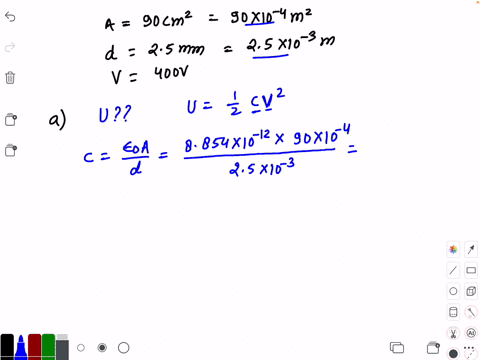 A = 90cm² = 90×10⁻⁴ m²
d = 2.5mm = 2.5×10⁻³ m
V = 400V
a) U?? U = 1/2 CV²
C = ε₀A/d = 8.854×10⁻¹² × 90×10⁻⁴ / 2.5×10⁻³ =